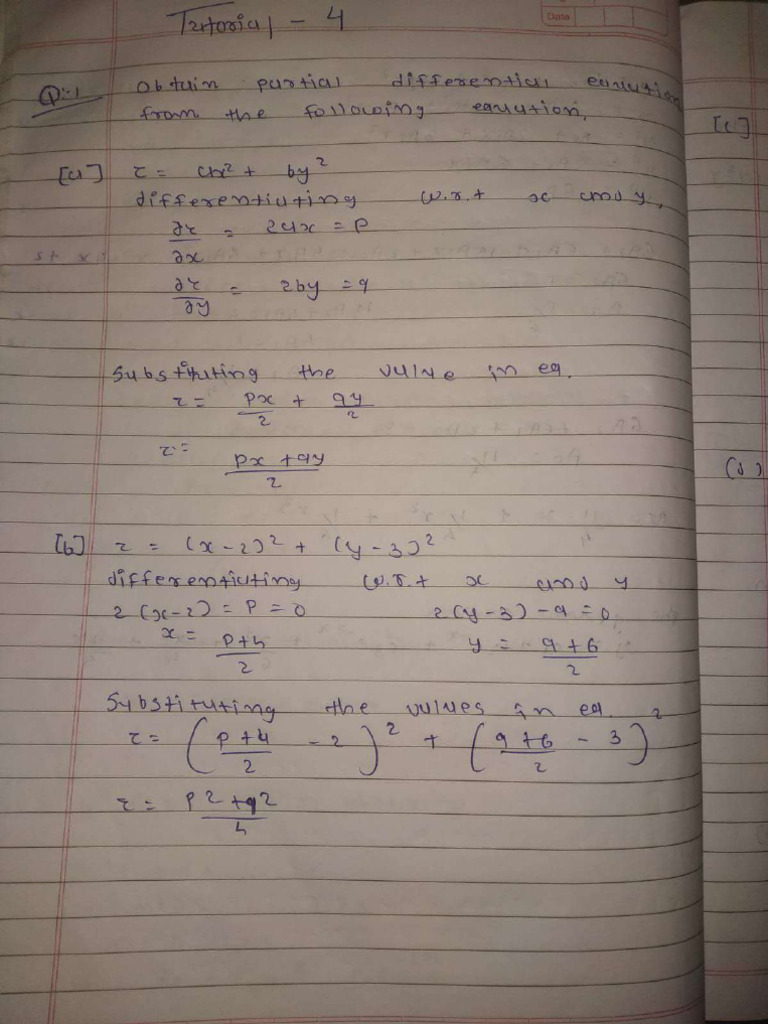 Tutorial - 4
Date
Q:-1 Obtain partial differential equation
from the following equation.
[a] z = ax² + by²
differentiating w.r.t x and y,
∂z/∂x = 2ax = p
∂z/∂y = 2by = q
Substituting the value in eq.
z = px/2 + qy/2
z = (px + qy)/2
[b] z = (x-2)² + (y-3)²
differentiating w.r.t x and y
2(x-2) = p = 0 2(y-3) - q = 0
x = (p+4)/2 y = (q+6)/2
Substituting the values in eq.
z = ((p+4)/2 - 2)² + ((q+6)/2 - 3)²
z = (p² + q²)/4
[c]
(d)